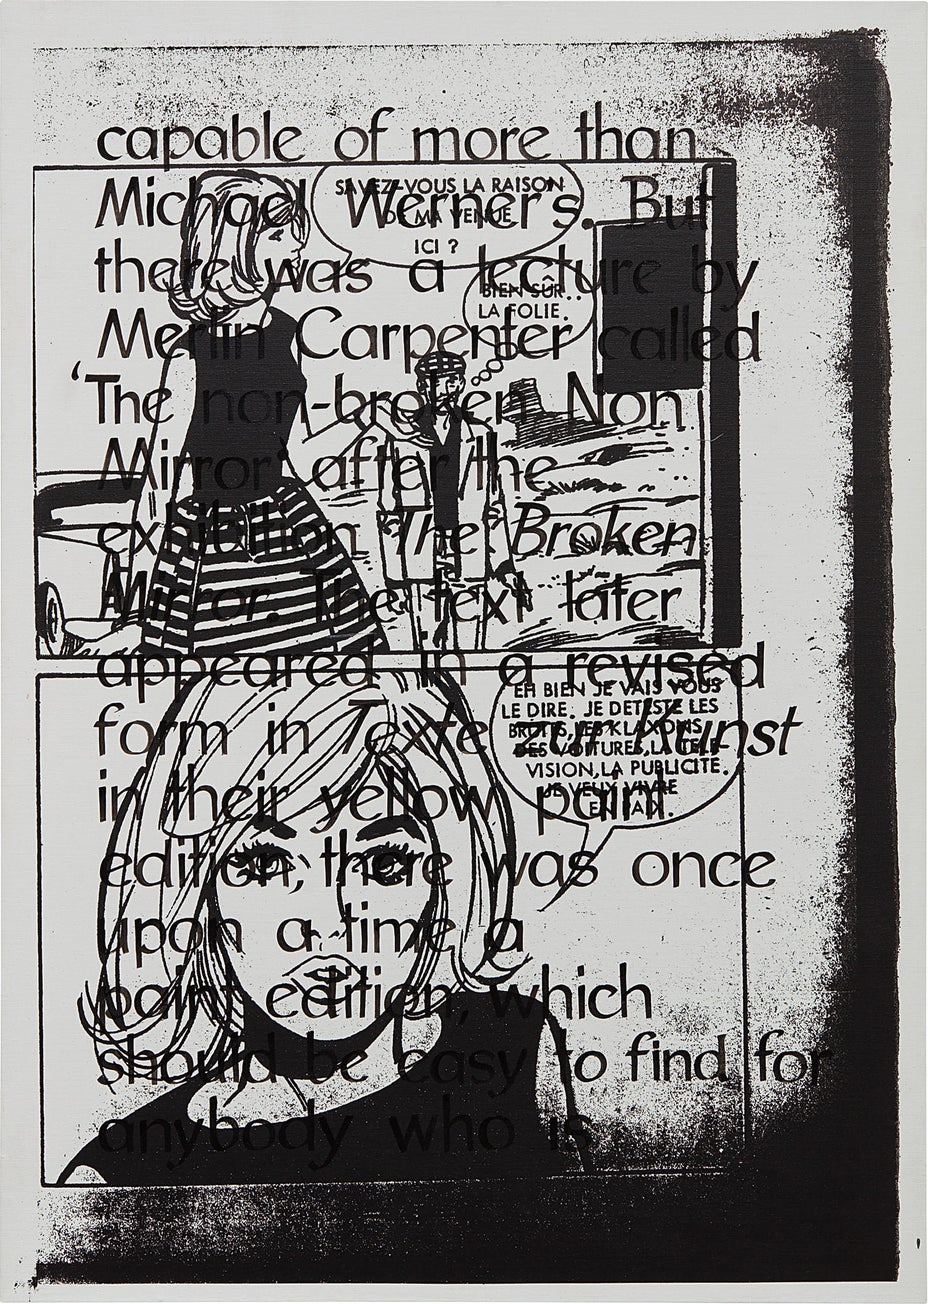 capable of more than
Michael Werner's. But
there was a lecture by
Merlin Carpenter called
‘The non-broken Non
Mirror’ after the
exhibition The Broken
Mirror. The text later
appeared in a revised
form in Texte zur Kunst
in their yellow paint
edition, there was once
upon a time a
paint edition, which
should be easy to find for
anybody who is
SAVEZ-VOUS LA RAISON
DE MA VENUE
ICI ?
BIEN SÛR..
LA FOLIE.
EH BIEN JE VAIS VOUS
LE DIRE. JE DETESTE LES
BRUITS, LES KLAXONS
DES VOITURES, LA TÉLÉ-
VISION, LA PUBLICITÉ.
JE VEUX VIVRE
EN PAIX.